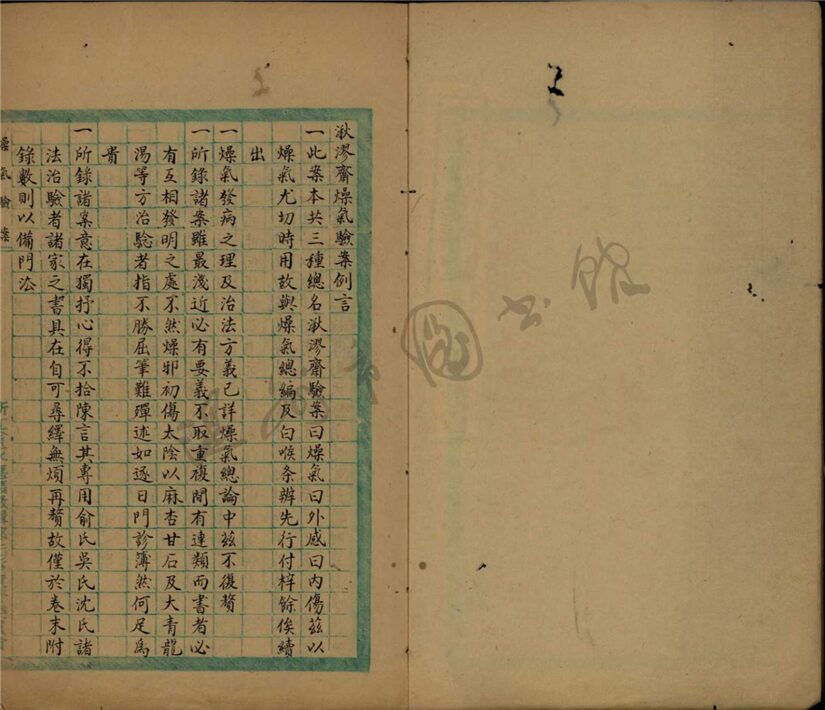 湫漻齋燥氣驗案例言
一此案本共三種總名湫漻齋驗案曰燥氣曰外感曰內傷茲以
燥氣尤切時用故與燥氣總編及白喉条辦先行付梓餘俟續
出
一燥氣發病之理及治法方義已詳燥氣總論中茲不復贅
一所錄諸案雖最淺近必有要義不取重複間有連類而書者必
有互相發明之處不然燥邪初傷太陰以麻杏甘石及大青龍
湯等方治驗者指不勝屈筆難殫述如逐日門診簿然何足為
貴
一所錄諸案意在獨抒心得不拾陳言其專用俞氏吳氏沈氏諸
法治驗者諸家之書具在自可尋繹無煩再贅故僅於卷末附
錄數則以備門法
燥氣驗案
書館